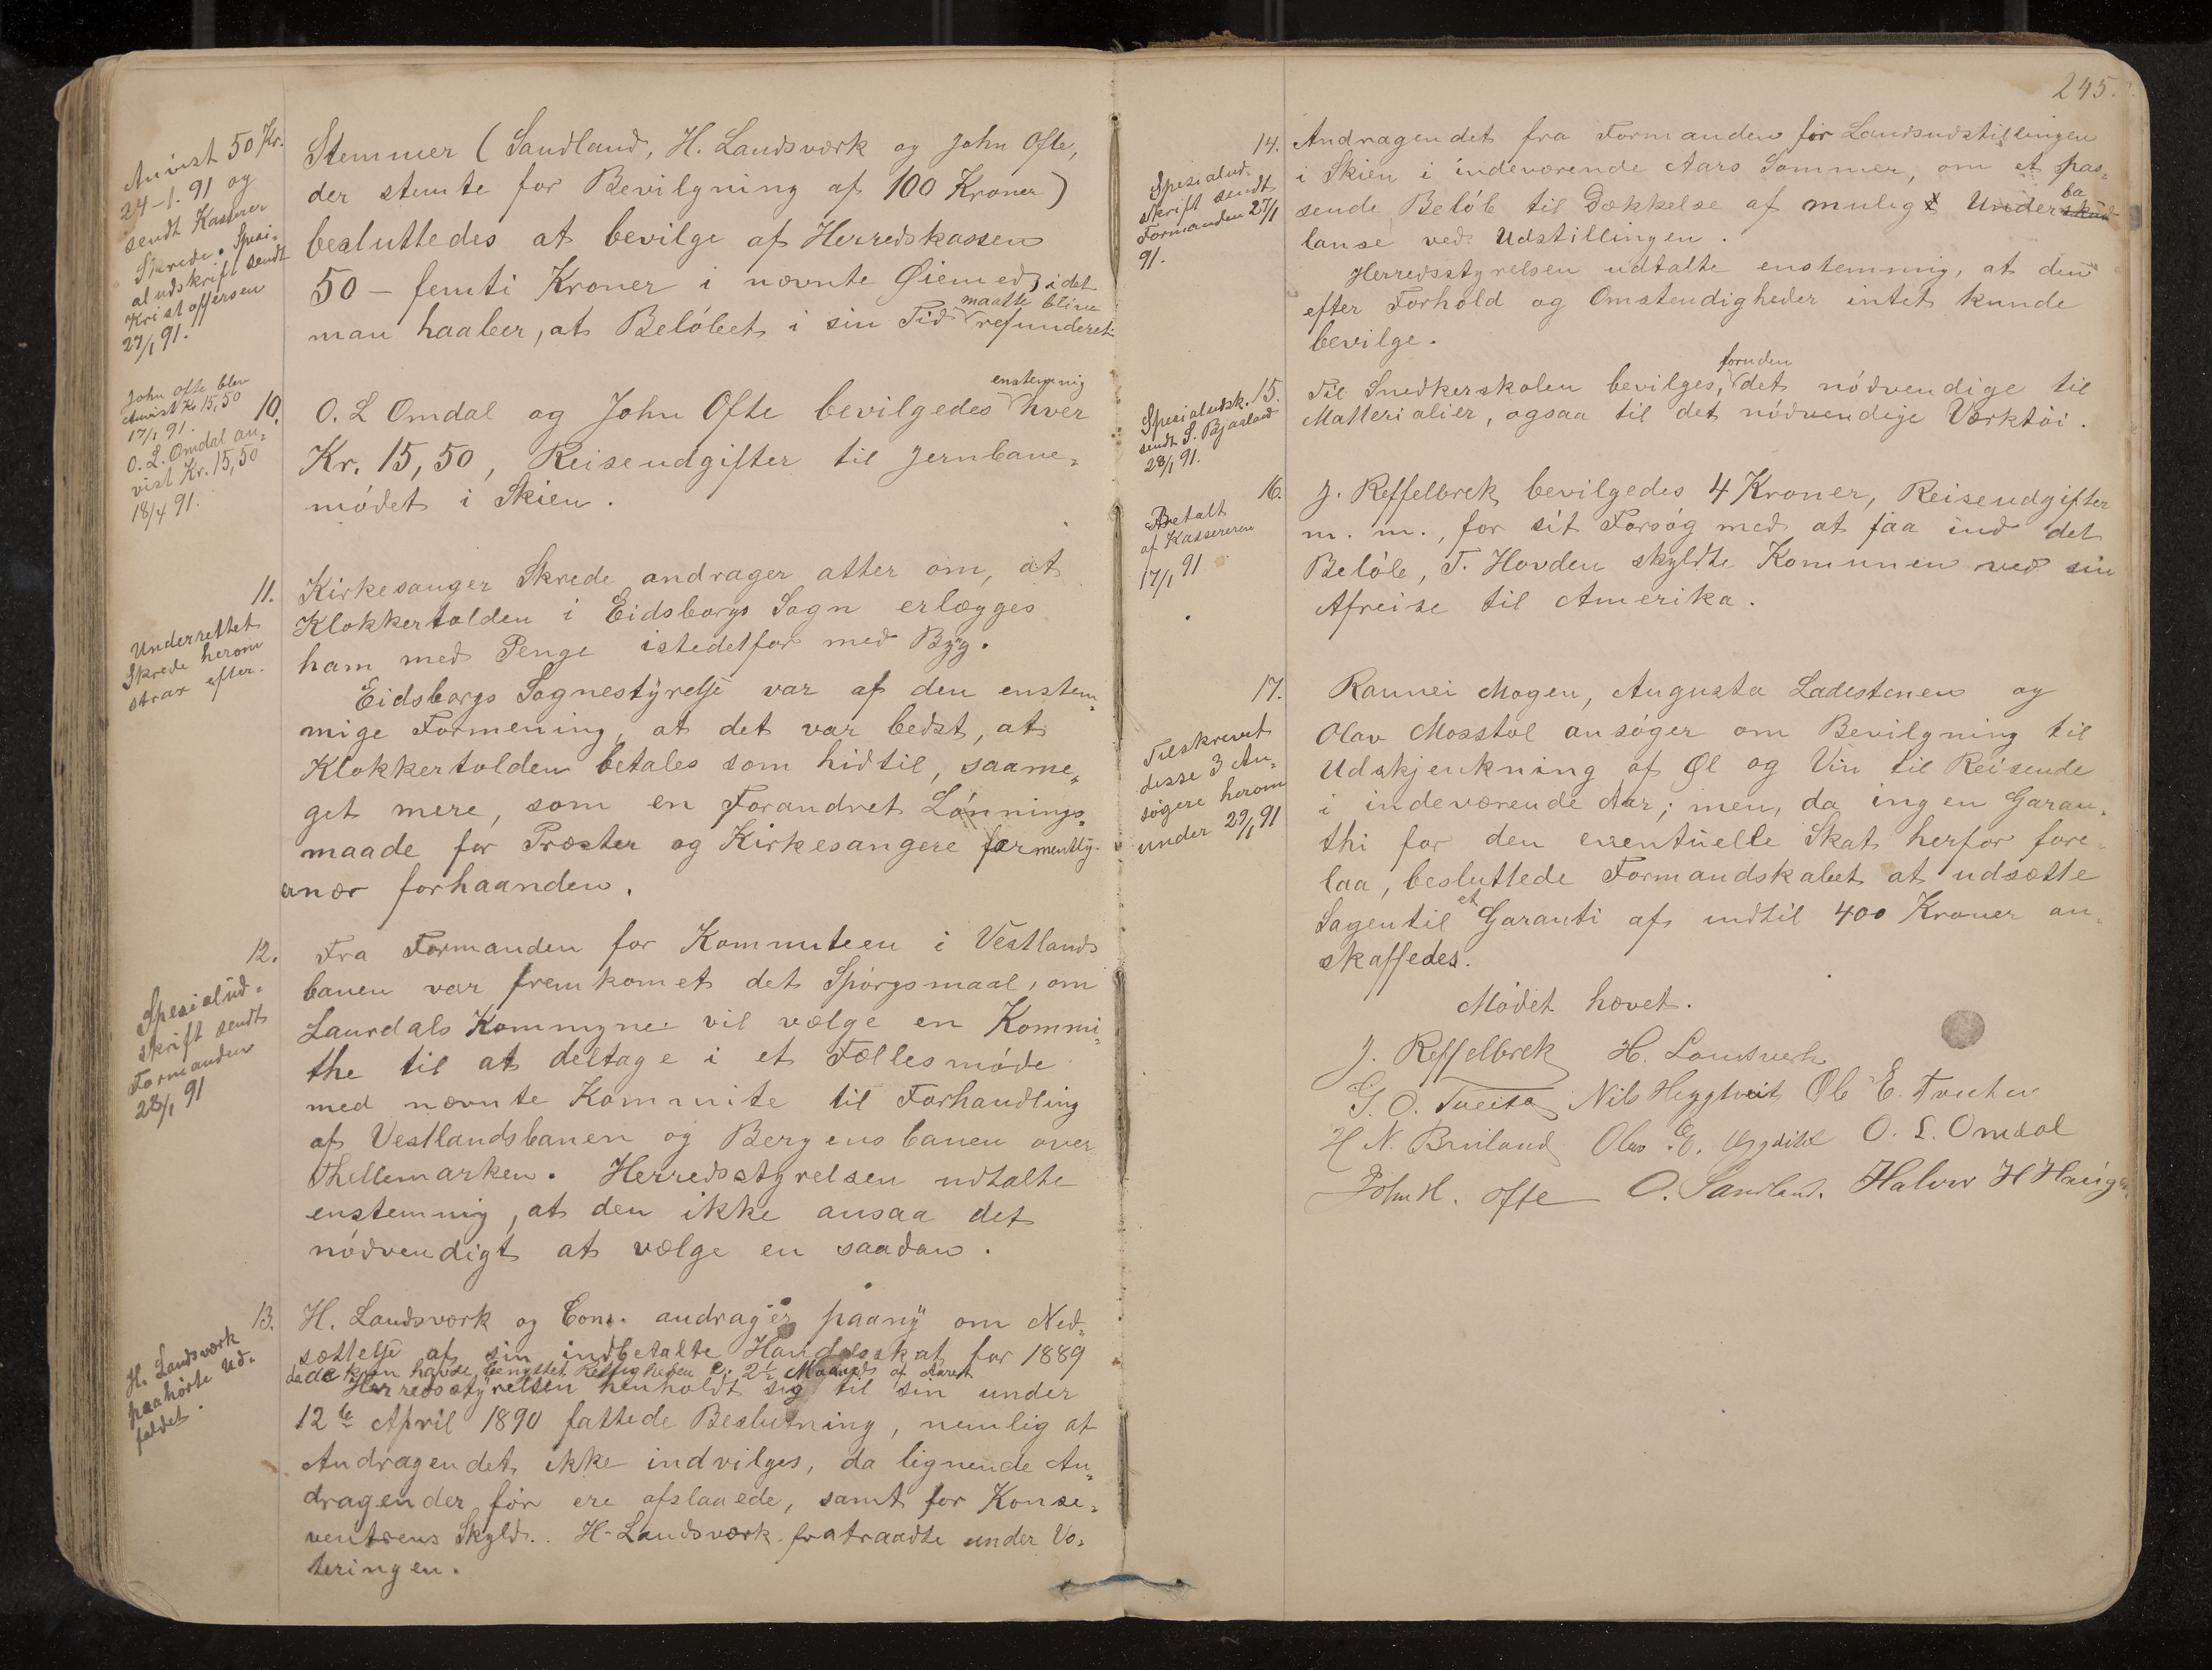 Anvist 50 Kr.
24-1. 91 og
sendt Kasserer
Skrede. Spesi-
aludskrift sendt
Kristoffersen
27/1 91.
Stemmer (Sandland, H. Landsværk og John Ofte,
der stemte for Bevilgning af 100 Kroner)
besluttedes at bevilge af Herredskassen
50 - femti Kroner i nævnte Øiemed, idet
man haaber, at Beløbet i sin Tid maatte blive refunderet
John Ofte blev
anvist Kr 15,50
17/1 91.
O. L. Omdal an-
vist Kr. 15,50
18/4 91.
10. O. L Omdal og John Ofte bevilgedes enstemmig hver
Kr. 15,50, Reiseudgifter til Jernbane-
mødet i Skien.
Underrettet
Skrede herom
strax efter.
11. Kirkesanger Skrede andrager atter om, at
Klokkertolden i Eidsborgs Sogn erlægges
ham med Penge istedetfor med Byg.
Eidsborgs Sognestyrelse var af den enstem-
mige Formening, at det var bedst, at
Klokkertolden betales som hidtil, saame-
get mere, som en Forandret Lønnings-
maade for Præster og Kirkesangere formentlig
er nær forhaanden.
Spesialud-
skrift sendt
Formanden
28/1 91
12. Fra Formanden for Kommiteen i Vestlands
banen var fremkomet det Spørgsmaal, om
Laurdals Kommune vil vælge en Kommi-
the til at deltage i et Fællesmøde
med nævnte Kommite til Forhandling
af Vestlandsbanen og Bergensbanen over
Thellemarken. Herredsstyrelsen udtalte
enstemmig, at den ikke ansaa det
nødvendigt at vælge en saadan.
H. Landsværk
paahørte Ud-
faldet.
13. H. Landsværk og Com. andrager paany om Ned-
sættelse af sin indbetalte Handelsskat for 1889
da de kun havde benyttet Rettigheden i 2½ Maaned af Aaret
Herredsstyrelsen henholdt sig til sin under
12te April 1890 fattede Beslutning, nemlig at
Andragendet ikke indvilges, da lignende An-
dragender før ere afslaaede, samt for Konse-
ventsens Skyld. H. Landsværk fratraadte under Vo-
teringen.
245.
Spesialud-
skrift sendt
Formanden 27/1
91.
14. Andragendet fra Formanden for Landsudstillingen
i Skien i indeværende Aars Sommer, om et pas-
sende Beløb til Dækkelse af mulig Underba
lanse ved Udstillingen.
Herredsstyrelsen udtalte enstemmig, at den
efter Forhold og Omstendigheder intet kunde
bevilge.
Spesialudsk.
sendt S. Bjaaland
28/1 91.
15. Til Snedkerskolen bevilges, foruden det nødvendige til
Matterialier, ogsaa til det nødvendige Værktøi.
Betalt
af Kassereren
17/1 91
16. J. Reffelbrek bevilgedes 4 Kroner, Reiseudgifter
m. m., for sit Forsøg med at faa ind det
Beløb, T. Hovden skyldte Komunen ved sin
Afreise til Amerika.
Tilskrevet
disse 3 An-
søgere herom
under 29/1 91
17. Rannei Mogen, Augusta Ladestenen og
Olav Mosstøl ansøger om Bevilgning til
Udskjenkning af Øl og Vin til Reisende
i indeværende Aar; men, da ingen Garan-
thi for den eventuelle Skat herfor fore-
laa, besluttede Formandskabet at udsætte
Sagen til et Garanti af indtil 400 Kroner an-
skaffedes.
Mødet hævet.
J. Reffelbrek H. Landsverk
G. O. Tveito Nils Heggtveit Ole E.
H N. Bruland Olav E. O. L. Omdal
John H. Ofte O. Sandland. Halvor H Haugen